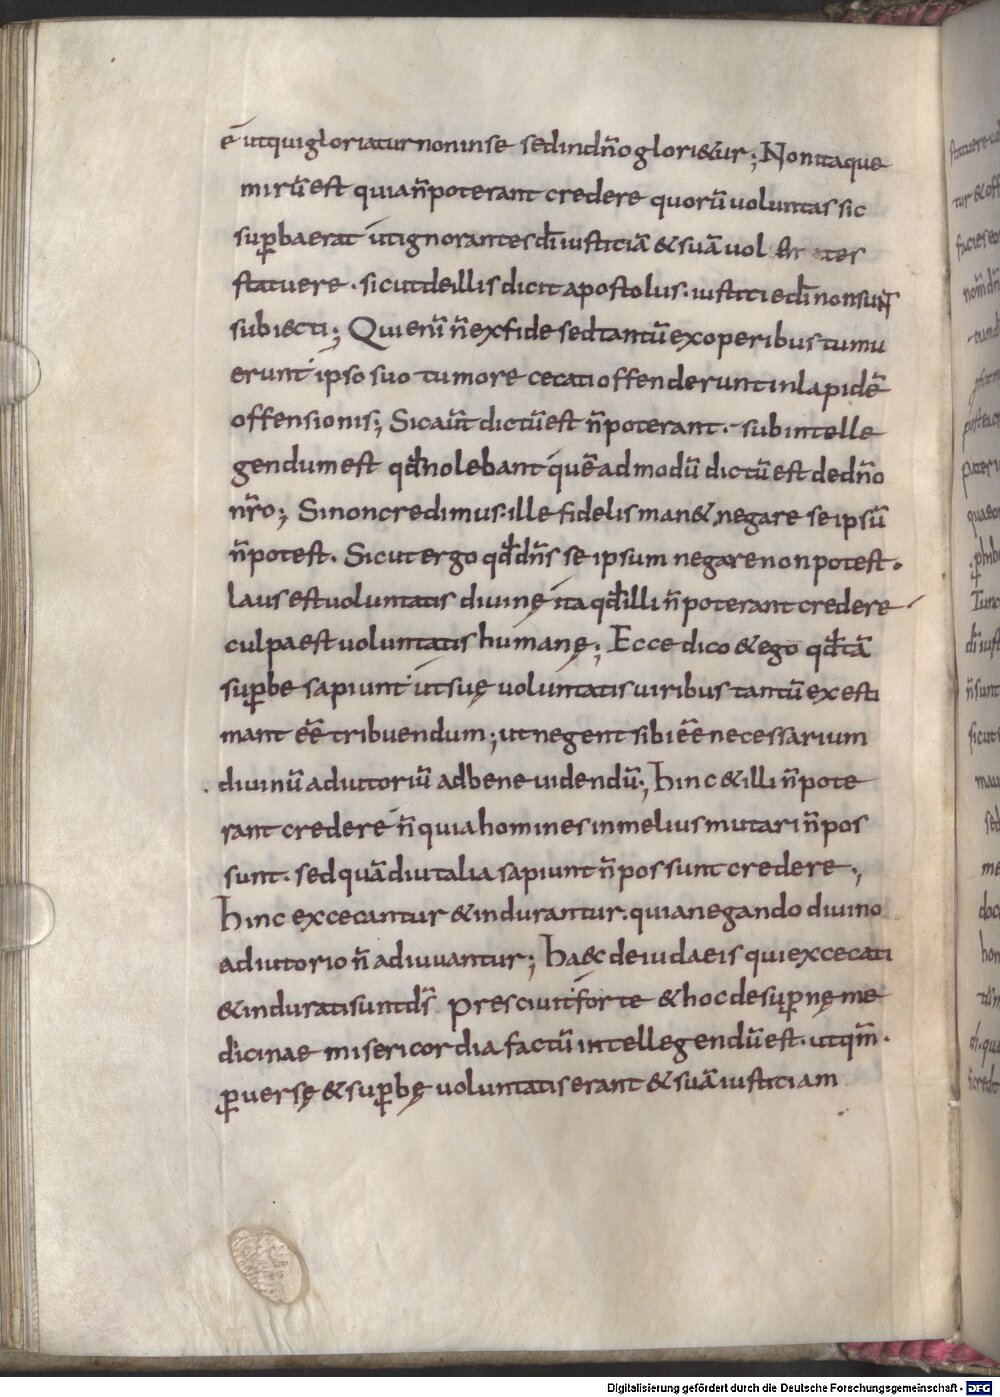 ē ut qui gloriatur non in se sed in dn̄o glori&ur; Non itaque
mirū est quia n̄ poterant credere quorū voluntas sic
sup̄ba erat ut ignorantes dī iustitiā & suā vol
statuere · sicut de illis dicit apostolus · iustitie dī non sunt
subiecti; Qui enī n̄ ex fide sed tantū ex operibus tumu
erunt ipso suo tumore cecati offenderunt in lapidē
offensionis; Sic aut̄ dictū est n̄ poterant · sub intelle
gendum est qđ nolebant quēadmodū dictū est de dn̄o
nr̄o; Si non credimus · ille fidelis man& negare se ipsū
n̄ potest · Sicut ergo qđ dn̄s se ipsum negare non potest ·
laus est voluntatis divinę ita qđ illi n̄ poterant credere
culpa est voluntatis humanę; Ecce dico & ego qđ tā
sup̄be sapiunt ut suę voluntatis viribus tantū existi
mant eē tribuendum; ut negent sibi eē necessarium
divinū adiutoriū ad bene videndū; hinc & illi n̄ pote
rant credere n̄ quia homines in melius mutari n̄ pos
sunt · sed quādiu talia sapiunt n̄ possunt credere;
hinc excecantur & indurantur · quia negando divino
adiutorio n̄ adiuvantur; ha&c de iudaeis qui excecati
& indurati sunt ds̄ prescivit forte & hoc de sup̄nę me
dicinae misericordia factū intellegendū est · ut qm̄ ·
p̄versę & sup̄bę voluntatis erant & suā iustitiam
Digitalisierung gefördert durch die Deutsche Forschungsgemeinschaft - DFG